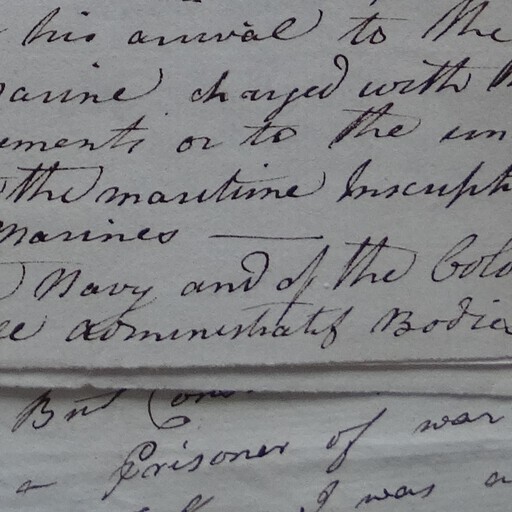 his arrival to the
arine charged with
ements or to the
the maritime Inscript
marines
Navy and of the Colo
administratif Bodies
But Cons
a Prisoner of war
I was a